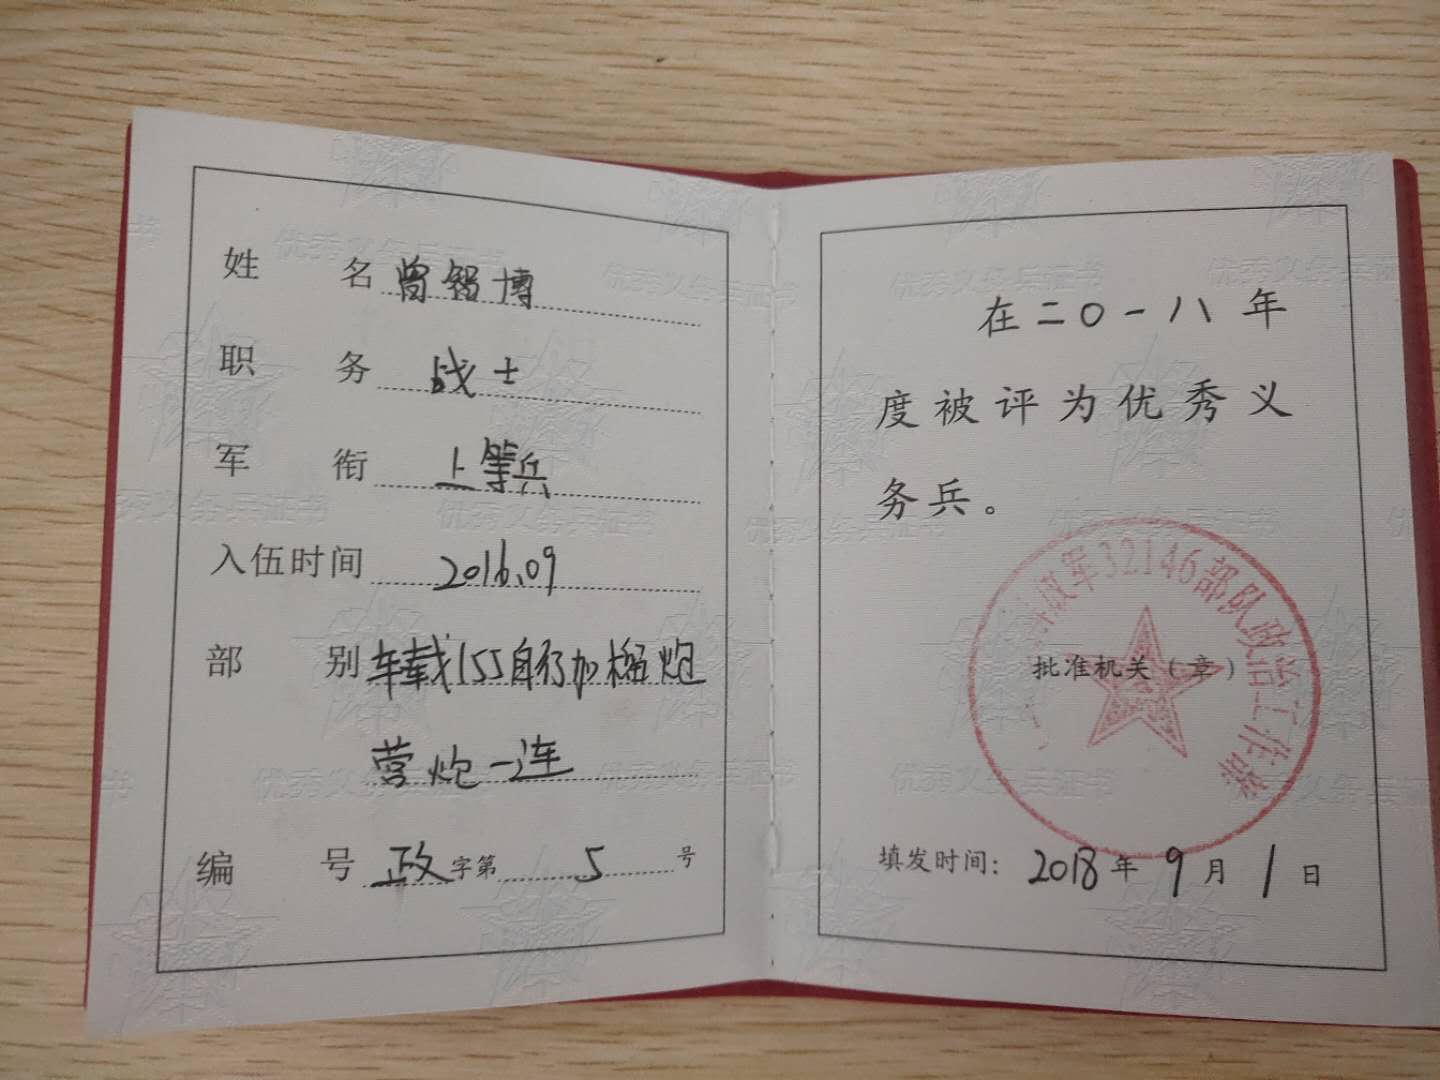 姓名 曾智博
职务 战士
军衔 上等兵
入伍时间 2016.09
部别 车载155自行加榴炮
营炮一连
编号 政字第 5 号
在二〇一八年
度被评为优秀义
务兵。
放军32146部队政治工作部
批准机关（章）
填发时间：2018年9月1日
优秀义务兵证书